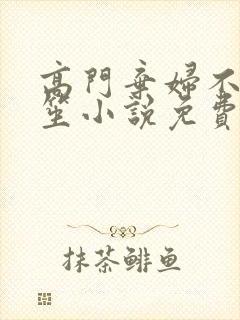 高門棄婦不
笙小說免費
抹茶鲱鱼